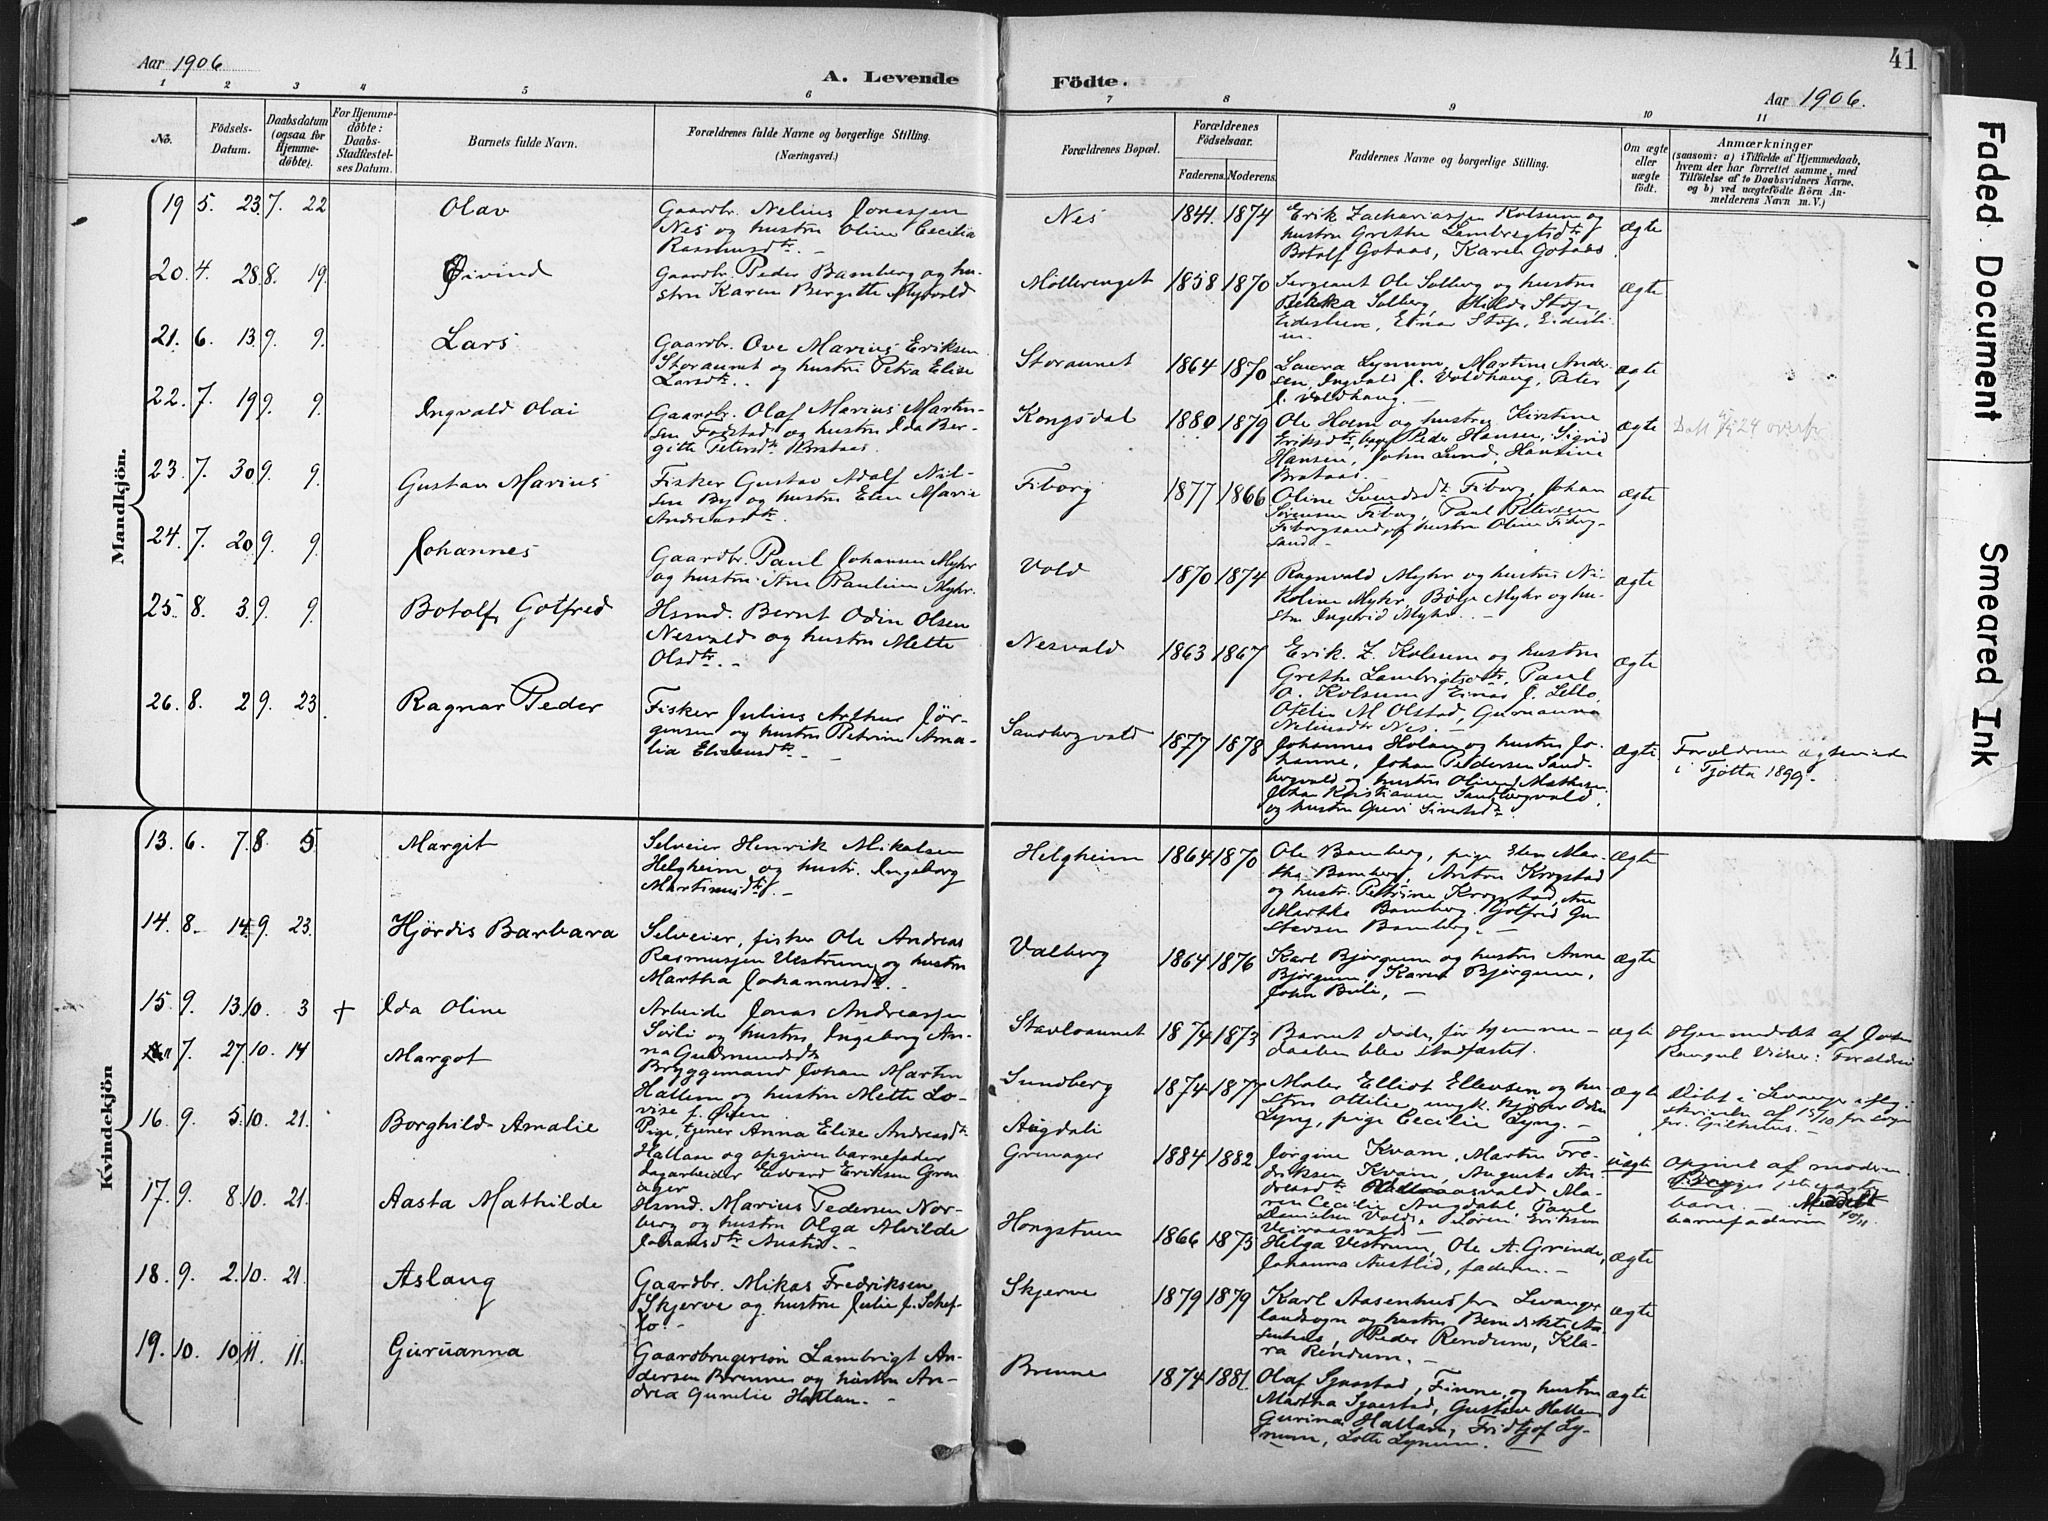 Aar 1906
A. Levende
Födte.
Aar 1906.
41
1 2 3 4 5 6 7 8 9 10 11
No.
Födsels-
Datum.
Daabsdatum
(ogsaa for
Hjemme-
döbte).
For Hjemme-
döbte:
Daabs-
Stadfæstel-
ses Datum.
Barnets fulde Navn.
Forældrenes fulde Navne og borgerlige Stilling.
(Næringsvei.)
Forældrenes Bopæl.
Forældrenes
Födselsaar.
Faderens. Moderens.
Faddernes Navne og borgerlige Stilling.
Om ægte
eller
uægte
födt.
Anmærkninger
(saasom: a) i Tilfælde af Hjemmedaab,
hvem der har forrettet samme, med
Tilföielse af to Daabsvidners Navne,
og b) ved uægtefödte Börn An-
melderens Navn m. V.)
Mandkjön.
19 5. 23. 7. 22
Olav
Gaardbr. Nelius Jonassen
Nes og hustru Oline Cecilia
Rasmusdtr. -
Nes
1844. 1874
Erik Zachariassen Kolsum og
hustru Grethe Lambregtsdtr
Botolf Gotaas, Karen Gotaas.
ægte
20. 4. 28. 8. 19.
Öivind
Gaardbr. Peder Bamberg og hu-
stru Karen Bergitte Myrvold
Mölleringet
1858 1870
Sergeant Ole Solberg og hustru
Solberg, Hilda Stöp,
Einar Stöp,
ægte
21. 6. 13. 9. 9.
Lars
Gaardbr. Ove Marius Eriksen
Storaunet og hustru Petra Elise
Larsdtr. -
Storaunet
1864 1870
Laura Lynum, Martin Ander-
sen, Ingvald J. Voldhaug, Peter
J. Voldhaug. -
ægte
22. 7. 19. 9. 9.
Ingvald Olai
Gaardbr. Olaf Marius Martin-
sen Fodstad og hustru Ida Ber-
gitte Petersdtr Brataas.
Kongsdal
1880 1879
Ole Holm og hustru Kirstine
Eriksdtr, Peder Hansen, Sigrid
Hansen, John Lund, Hansine
Brataas. -
ægte
23. 7. 30. 9. 9.
Gustav Marius
Fisker Gustav Adolf Nil-
sen By og hustru Elen Marie
Andreasdtr.
Fiborg
1877 1866
Oline Svendsdtr Fiborg, Johan
Sörensen Fiborg, Paul Petersen
Fiborgsand og hustru Oline Fiborg-
sand. -
ægte
24. 7. 20. 9. 9.
Johannes
Gaardbr. Paul Johansen Myhr
og hustru Ane Pauline Myhr.
Vold
1870 1874
Ragnvald Myhr og hustru Ni-
koline Myhr, Borje Myhr og hu-
stru Ingerid Myhr. -
ægte
25. 8. 3. 9. 9.
Botolf Gotfred
Hsmd. Bernt Odin Olsen
Nesvald og hustru Mette
Olsdtr. -
Nesvald
1863 1867
Erik Z. Kolsum og hustru
Grethe Lambrigtsdtr, Paul
O. Kolsum, Einar J. Lello,
Otelie M. Olstad, Guruanna
Neliusdtr Nes. -
ægte
26. 8. 2. 9. 23.
Ragnar Peder
Fisker Julius Arthur Jör-
gensen og hustru Petrine Ama-
lia -
Sandbergvald
1877 1878
Johannes Holan og hustru Jo-
hanne, Johan Pedersen Sand-
bergvald og hustru
Johan Kristiansen Sandbergvald,
og hustru
ægte
Forældrene ægteviede
i Tjötta 1899. -
Kvindekjön
13. 6. 7. 8. 5.
Margit
Selveier Henrik Mikalsen
Helgheim og hustr. Ingeborg
Martinusdtr. -
Helgheim
1864 1870
Ole Bamberg, pige Elen Mar-
tha Bamberg, Anton Krogstad
og hustr. Petrine Krogstad, Ane
Martha Bamberg, Gotfred Gu-
stavsen Bamberg. -
ægte
14. 8. 14. 9. 23.
Hjördis Barbara
Selveier, fisker Ole Andreas
Rasmussen Vestrum og hustru
Martha Johannesdtr. -
Valberg
1864 1876
Karl Björgum og hustru Anna
Björgum, Karen Björgum,
John Bule, -
ægte
15. 9. 13. 10. 3 +
Ida Oline
Arbeide Jonas Andreassen
og hustru Ingeborg An-
na Gudmundsdtr
Stavloaunet
1874 1873
Barnet döde, för hjemme-
daaben blev stadfæstet.
ægte
Hjemmedöbt af
Vidner: Forældre
7. 27. 10. 14
Margot
Bryggemand Johan Martin
Hallem og hustru Mette Lo-
vise f. Öien.
Sundberg
1874 1877
Maler Elliot Ellevsen og hu-
stru Ottilie, ungk. Odin
Lyng, pige Cecilie Lyng. -
ægte
Döbt i Levanger iflg.
skrivelse af 15/10
16. 9. 5. 10. 21.
Borghild Amalie
Pige, tjener Anna Elise Andreasdtr
Hallan og opgiven barnefader
Dagarbeider Edvard Eriksen Gren-
ager
Augdal i
Grenager
1884 1882
Jörgine Kvam, Martin Fre-
driksen Kvam, Augusta An-
dreasdtr Ma-
ren Cecilie Augdahl, Paul
Danielsen Vold, Sören Eriksen
uægte
Opgivet af moderen.
Begges 1ste uægte
barn. - Meddelt
barnefaderen 10/11.
17. 9. 8. 10. 21.
Aasta Mathilde
Hsmd. Marius Pedersen Nor-
berg og hustru Olga Alvilde
Johansdtr Austlid. -
Hongstuen
1866 1873
Helga Vestrum, Ole A. Grinde,
Johanna Austlid, faderen. -
ægte
18. 9. 2. 10. 21.
Aslaug
Gaardbr. Mikas Fredriksen
Skjerve og hustru Julie J. Schef-
lo. -
Skjerve
1879 1879
Karl Aasenhus fra Levanger
landsogn og hustru Benedikte Aa-
senhus, Peder Rendum, Kla-
ra Rendum. -
ægte
19. 10. 10. 11. 11.
Guruanna
Gaardbrugersön Lambrigt An-
dersen Brenne og hustru An-
drea Gurelie Hallan. -
Brenne
1874 1881.
Olaf Sjaastad, Finne, og hustru
Martha Sjaastad, Gustav Hallan
Gurina Hallan, Fridtjof Ly-
num, Lotte Lynum. -
ægte
Faded Document
Smeared Ink